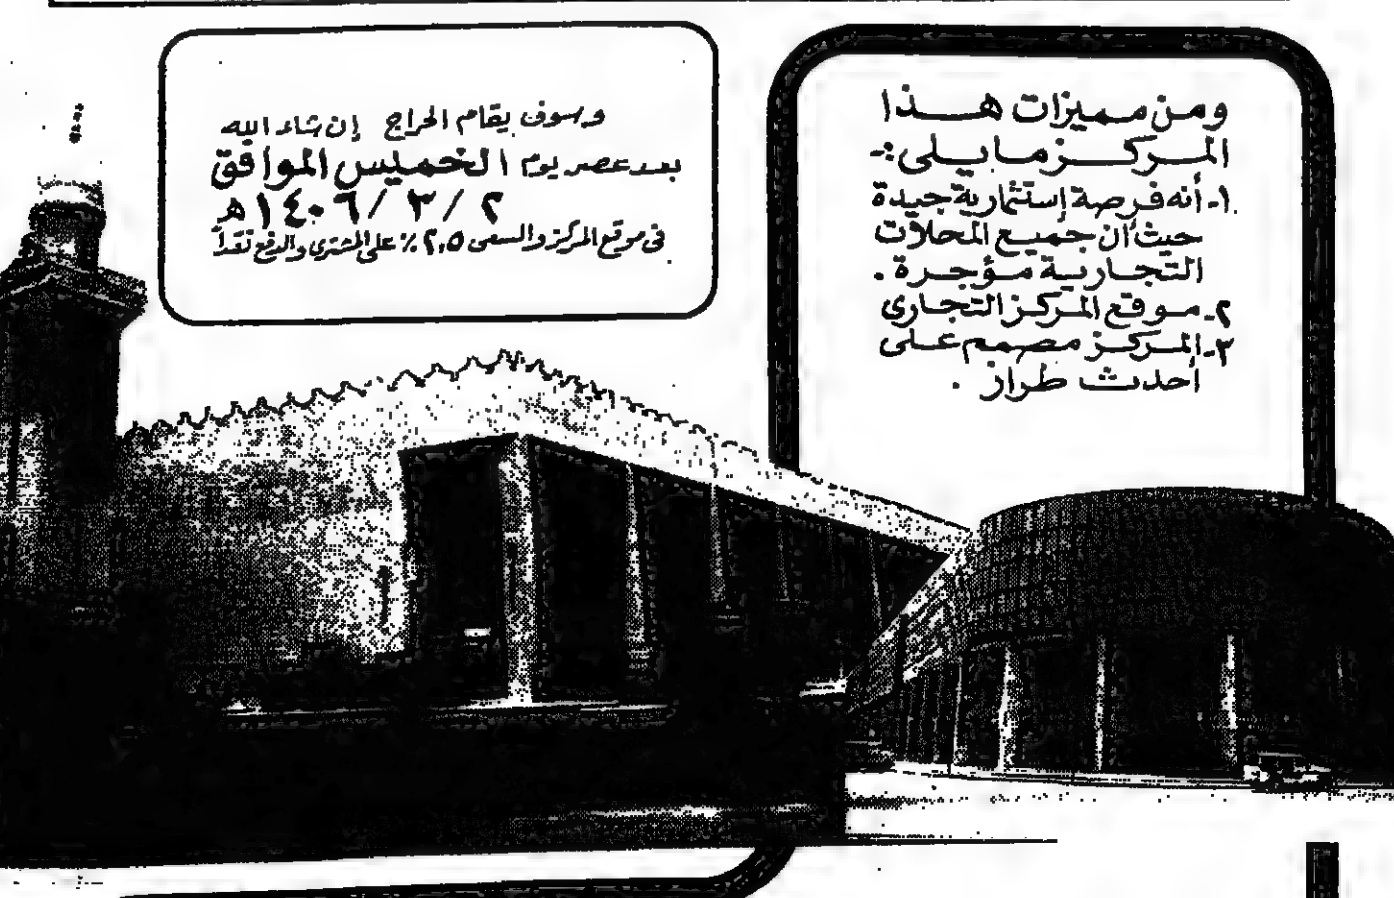 ومن مميزات هــذا
المركــز مايــلى:-
١- أنه فرصة إستثمارية جيدة
حيث أن جميع المحلات
التجارية مؤجرة .
٢- موقع المركز التجارى
٣- المركز مصمم على
أحدث طراز .
وسوف يقام الحراج إن شاء الله
بعد عصر يوم الخميس الموافق
٢ / ٣ / ١٤٠٦ هـ
فى موقع المركز والسعى ٢,٥ ٪ على المشترى والدفع نقداً